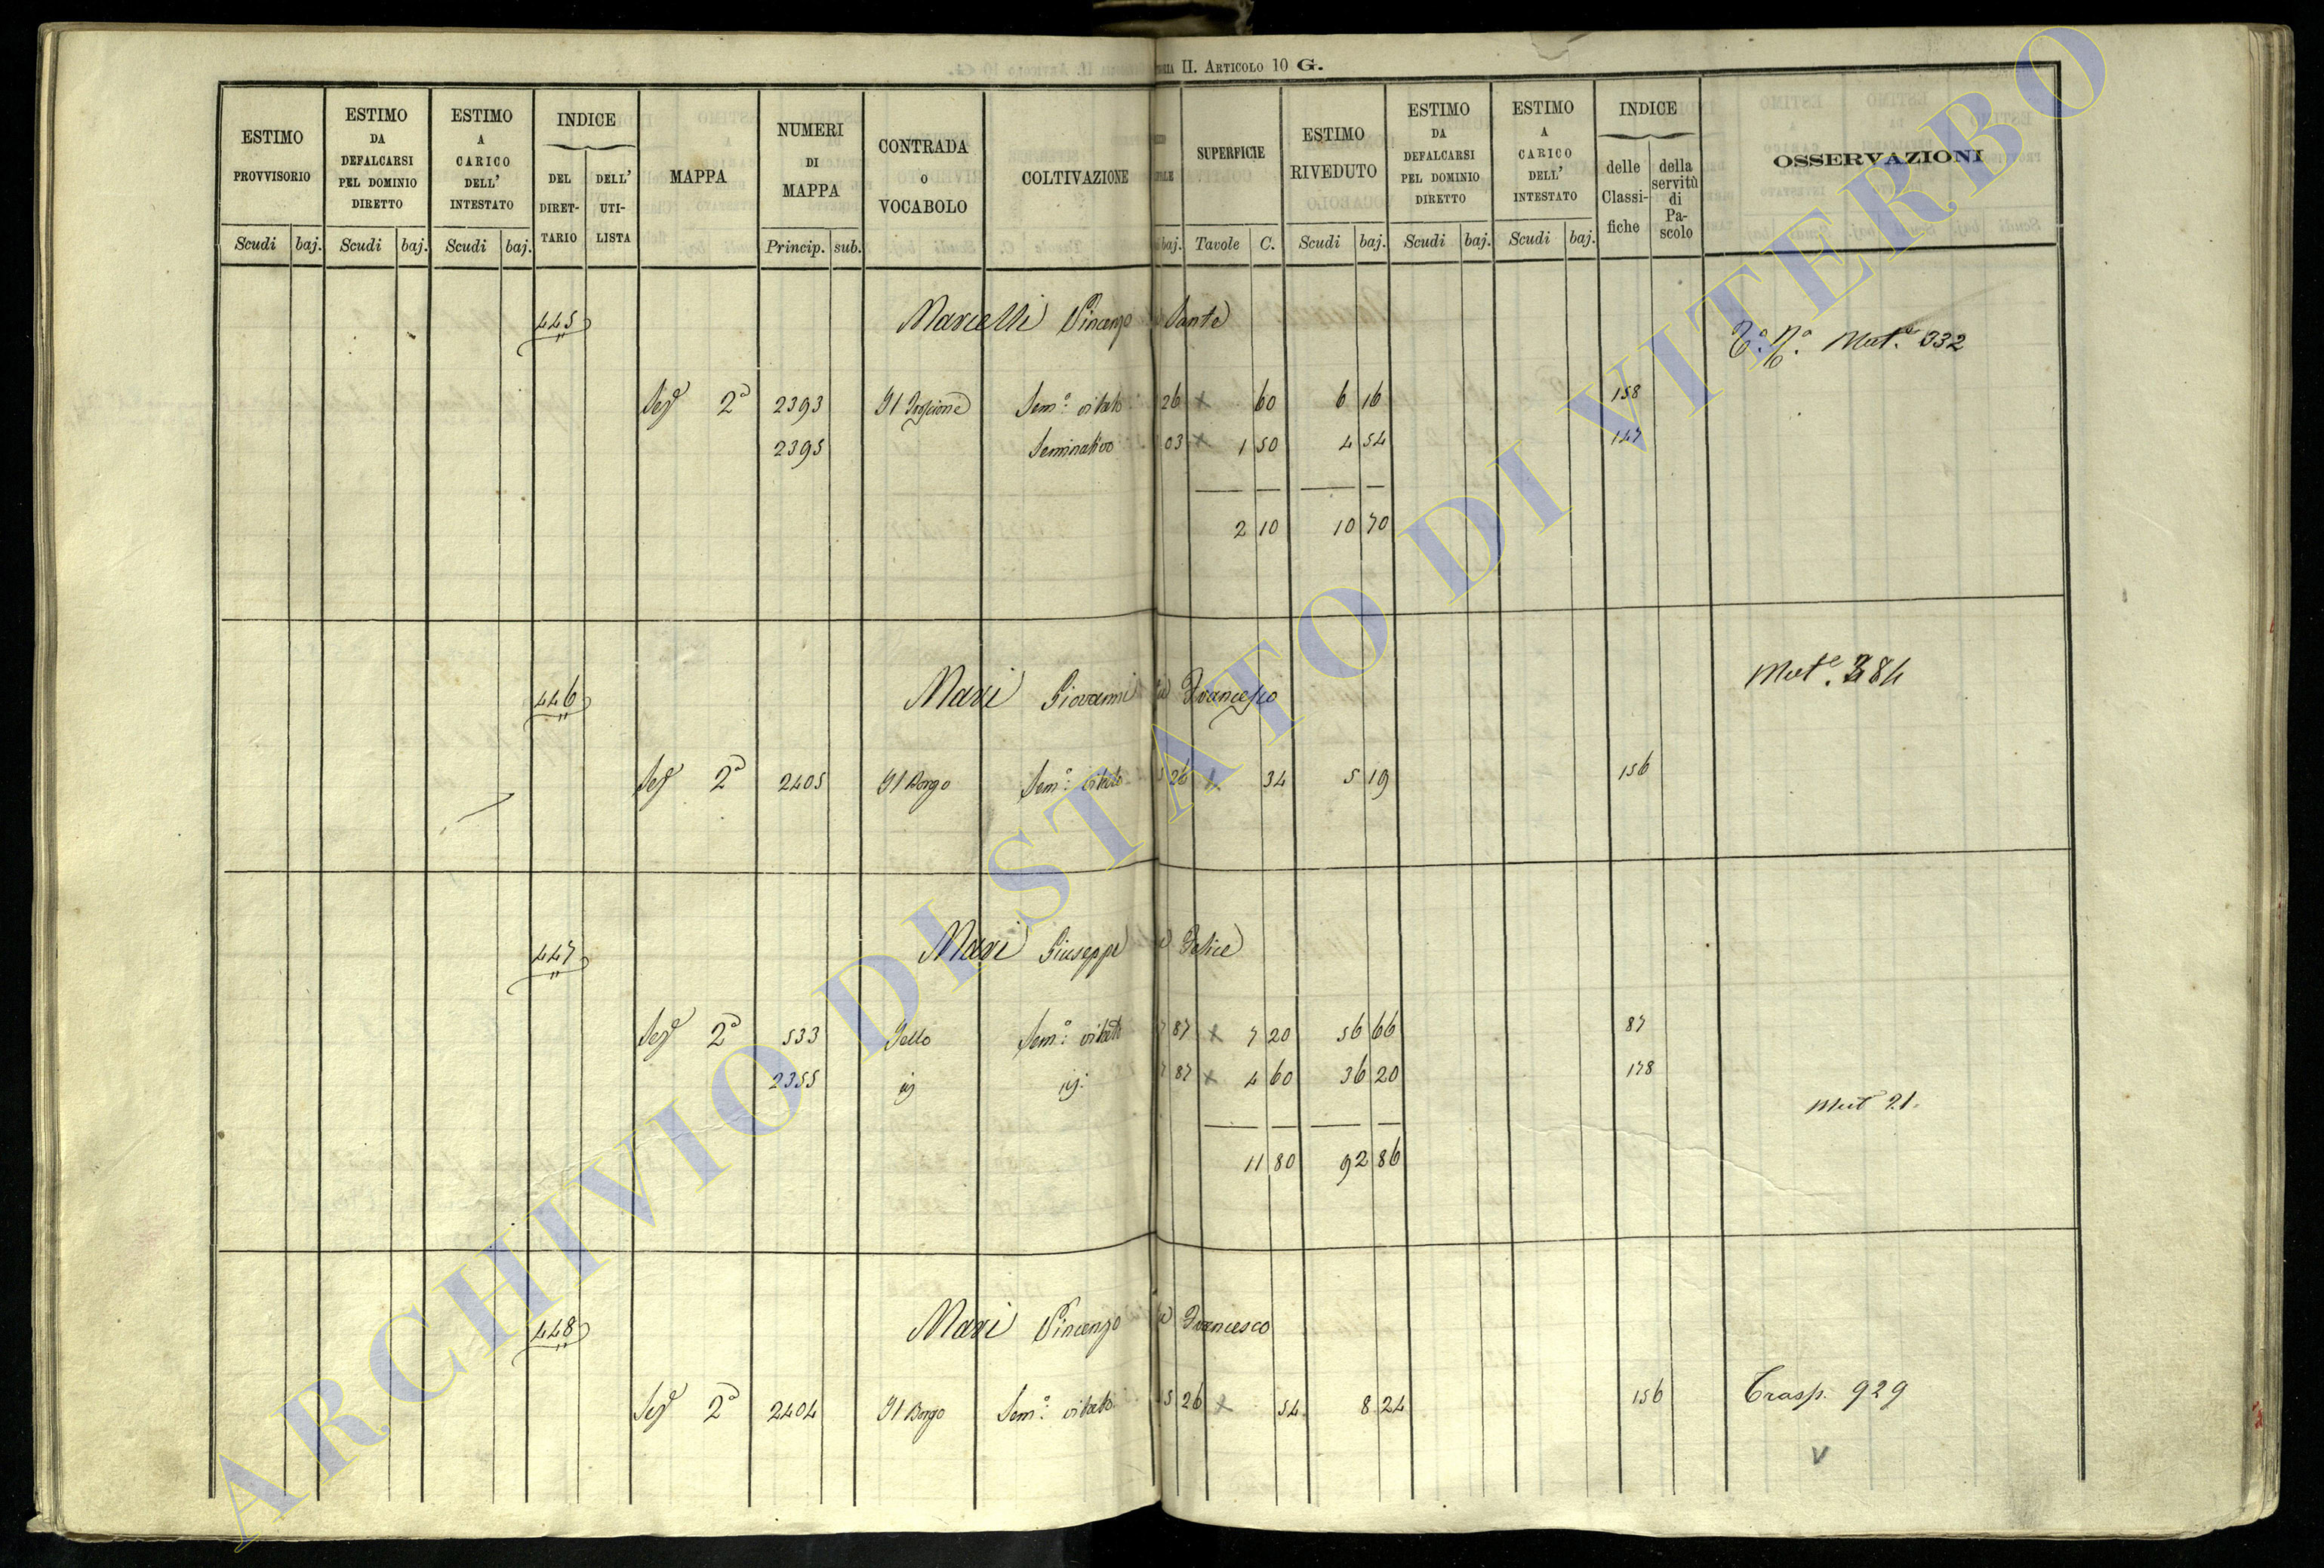 II. ARTICOLO 10 G.
ESTIMO PROVVISORIO
ESTIMO DA DEFALCARSI PEL DOMINIO DIRETTO
ESTIMO A CARICO DELL' INTESTATO
INDICE
DEL DIRETTARIO
DELL' UTILISTA
MAPPA
NUMERI DI MAPPA
CONTRADA O VOCABOLO
COLTIVAZIONE
SUPERFICIE
ESTIMO RIVEDUTO
ESTIMO DA DEFALCARSI PEL DOMINIO DIRETTO
ESTIMO A CARICO DELL' INTESTATO
INDICE
delle Classifiche
della servitù di Pascolo
OSSERVAZIONI
Scudi baj. Scudi baj. Scudi baj. Princip. sub. baj. Tavole C. Scudi baj. Scudi baj. Scudi baj.
445 Marcelli Vincenzo Sante
Mut.e 332
Sez.e 2a 2393 Sem.o vitato 26 60 6 16 158
2395 Seminativo 03 1 50 4 54 147
2 10 10 70
446 Mari Giovanni Francesco
Mut.e 384
Sez.e 2a 2405 Il Borgo Sem.o vitato 26 34 5 19 156
447 Mari Giuseppe Felice
Sez.e 2a 533 Sem.o vitato 87 7 20 56 66 87
2355 87 4 60 36 20 178
Mut 21.
11 80 92 86
448 Mari Vincenzo Francesco
Sez.e 2a 2404 Il Borgo Sem.o vitato 5 26 54 8 24 156 Trasp. 929
ARCHIVIO DI STATO DI VITERBO